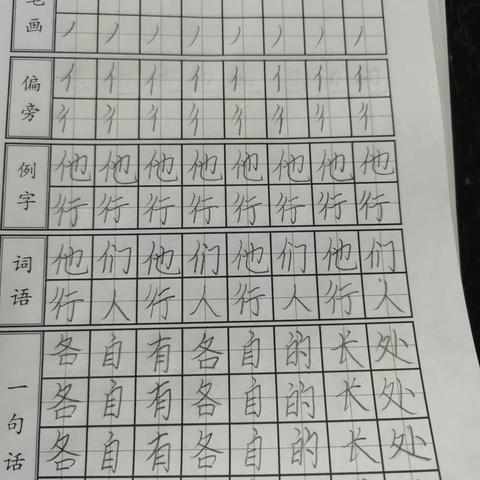 笔画 丿 丿 丿 丿 丿 丿 丿 丿
偏旁 亻 亻 亻 亻 亻 亻 亻 亻
彳 彳 彳 彳 彳 彳 彳 彳
例字 他 他 他 他 他 他 他 他
行 行 行 行 行 行 行 行
词语 他 们 他 们 他 们 他 们
行 人 行 人 行 人 行 人
一句话 各 自 有 各 自 的 长 处
各 自 有 各 自 的 长 处
各 自 有 各 自 的 长 处